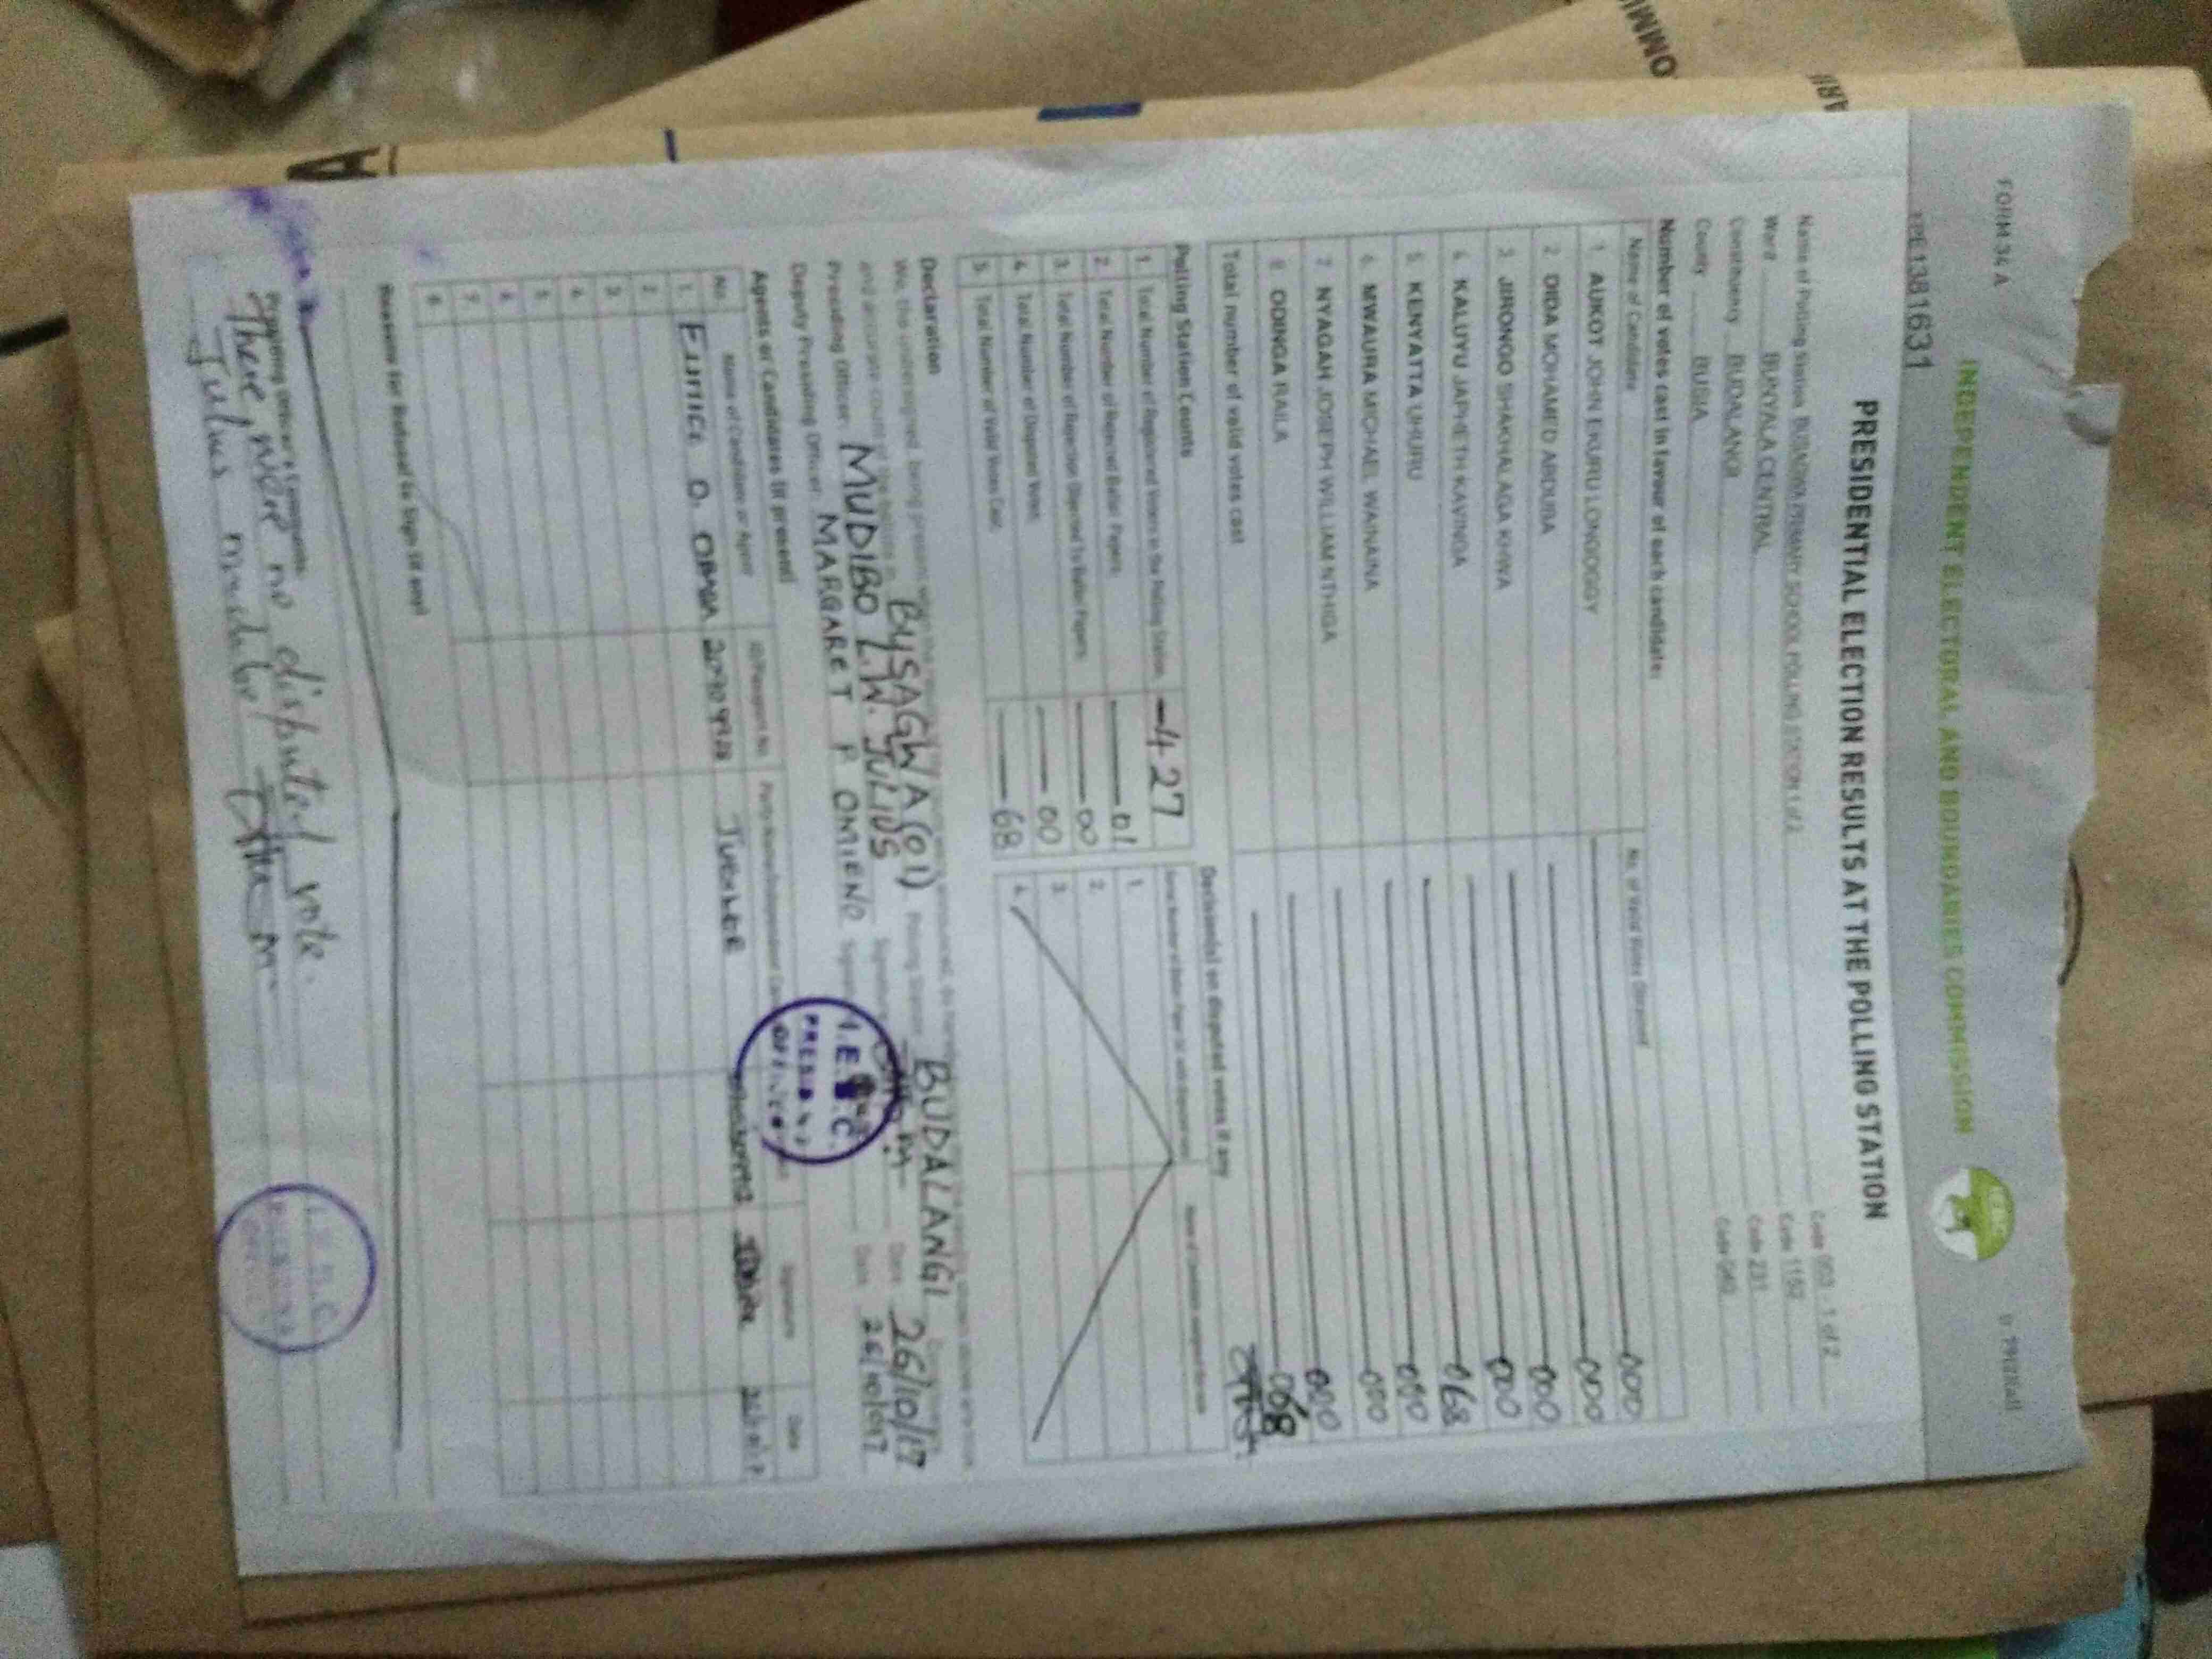 FORM 34 A
INDEPENDENT ELECTORAL AND BOUNDARIES COMMISSION
PRE1381631
PRESIDENTIAL ELECTION RESULTS AT THE POLLING STATION
Name of Polling Station BUSAGWA PRIMARY SCHOOL POLLING STATION 1 of 2 Code 003 - 1 of 2
Ward BUNYALA CENTRAL Code 1192
Constituency BUDALANGI Code 231
County BUSIA Code 040
Number of votes cast in favour of each candidate:
Name of Candidate No. of Valid Votes Obtained
1. AUKOT JOHN EKURU LONGOGGY 000
2. DIDA MOHAMED ABDUBA 000
3. JIRONGO SHAKHALAGA KHWA 000
4. KALUYU JAPHETH KAVINGA 000
5. KENYATTA UHURU 068
6. MWAURA MICHAEL WAINAINA 000
7. NYAGAH JOSEPH WILLIAM NTHIGA 000
8. ODINGA RAILA 000
Total number of valid votes cast 068
Polling Station Counts
1. Total Number of Registered Voters in the Polling Station 427
2. Total Number of Rejected Ballot Papers 01
3. Total Number of Rejection Objected To Ballot Papers 00
4. Total Number of Disputed Votes 00
5. Total Number of Valid Votes Cast 68
Decision(s) on disputed votes if any
1.
2.
3.
4.
Declaration
We, the undersigned, being present
BUSAGWA (01) Polling Station BUDALANGI
Presiding Officer MUDIBO L.W. JULIUS Date 26/10/17
Deputy Presiding Officer MARGARET P OMIENO Date 26/10/2017
I.E.B.C.
PRESIDING
OFFICER
Agents of Candidates (if present)
No. Name of Candidate or Agent ID/Passport No. Signature Date
1. JUBILEE
2.
3.
4.
5.
6.
7.
8.
Reasons for Refusal to Sign (if any)
Presiding Officer's Comments
There were no disputed vote.
Julius mudibo